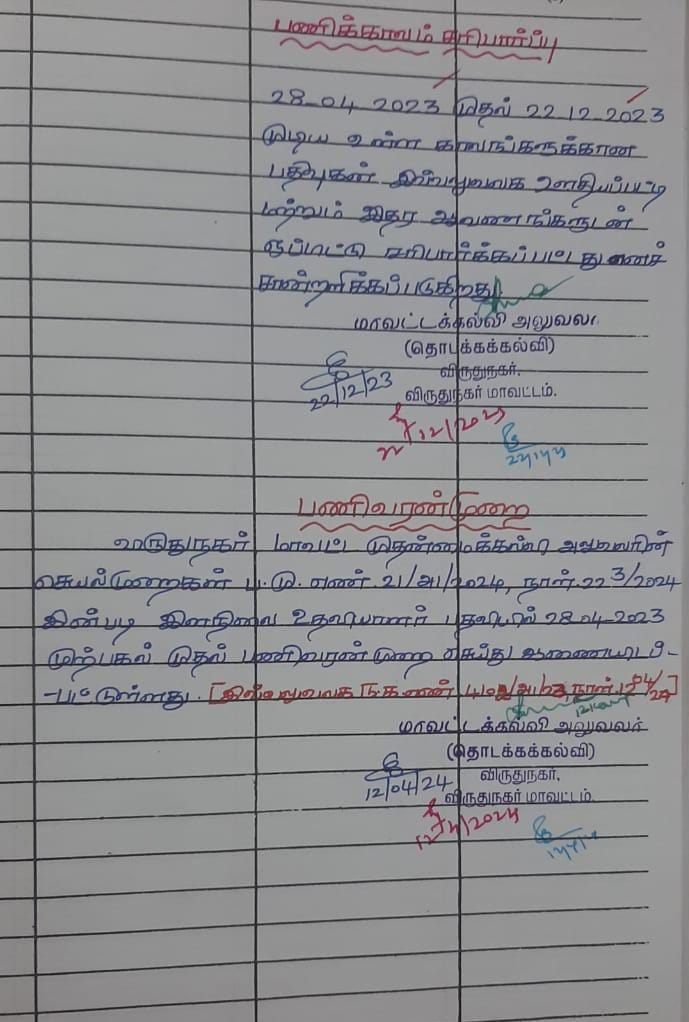 பணிக்காலம் சரிபார்ப்பு
28-04-2023 முதல் 22.12.2023
முடிய உள்ள காலங்களுக்கான
பதிவுகள் இவ்வலுவலக ஊதியப்பட்டி
மற்றும் இதர ஆவணங்களுடன்
ஒப்பிட்டு சரிபார்க்கப்பட்டது எனச்
சான்றளிக்கப்படுகிறது.
மாவட்டக்கல்வி அலுவலர்
(தொடக்கக்கல்வி)
விருதுநகர்.
22/12/23
விருதுநகர் மாவட்டம்.
பணிவரன்முறை
விருதுநகர் மாவட்ட முதன்மைக்கல்வி அலுவலரின்
செயல்முறைகள் ப.மு. எண். 21/அ1/2024, நாள். 22 3/2024
இன்படி இளநிலை உதவியாளர் பதவியில் 28.04-2023
முற்பகல் முதல் பணிவரன்முறை செய்து ஆணையிடப்-
-பட்டுள்ளது. [இவ்வலுவலக ந.க.எண் நாள். 12 04/24]
மாவட்டக்கல்வி அலுவலர்
(தொடக்கக்கல்வி)
விருதுநகர்.
12/04/24
விருதுநகர் மாவட்டம்.